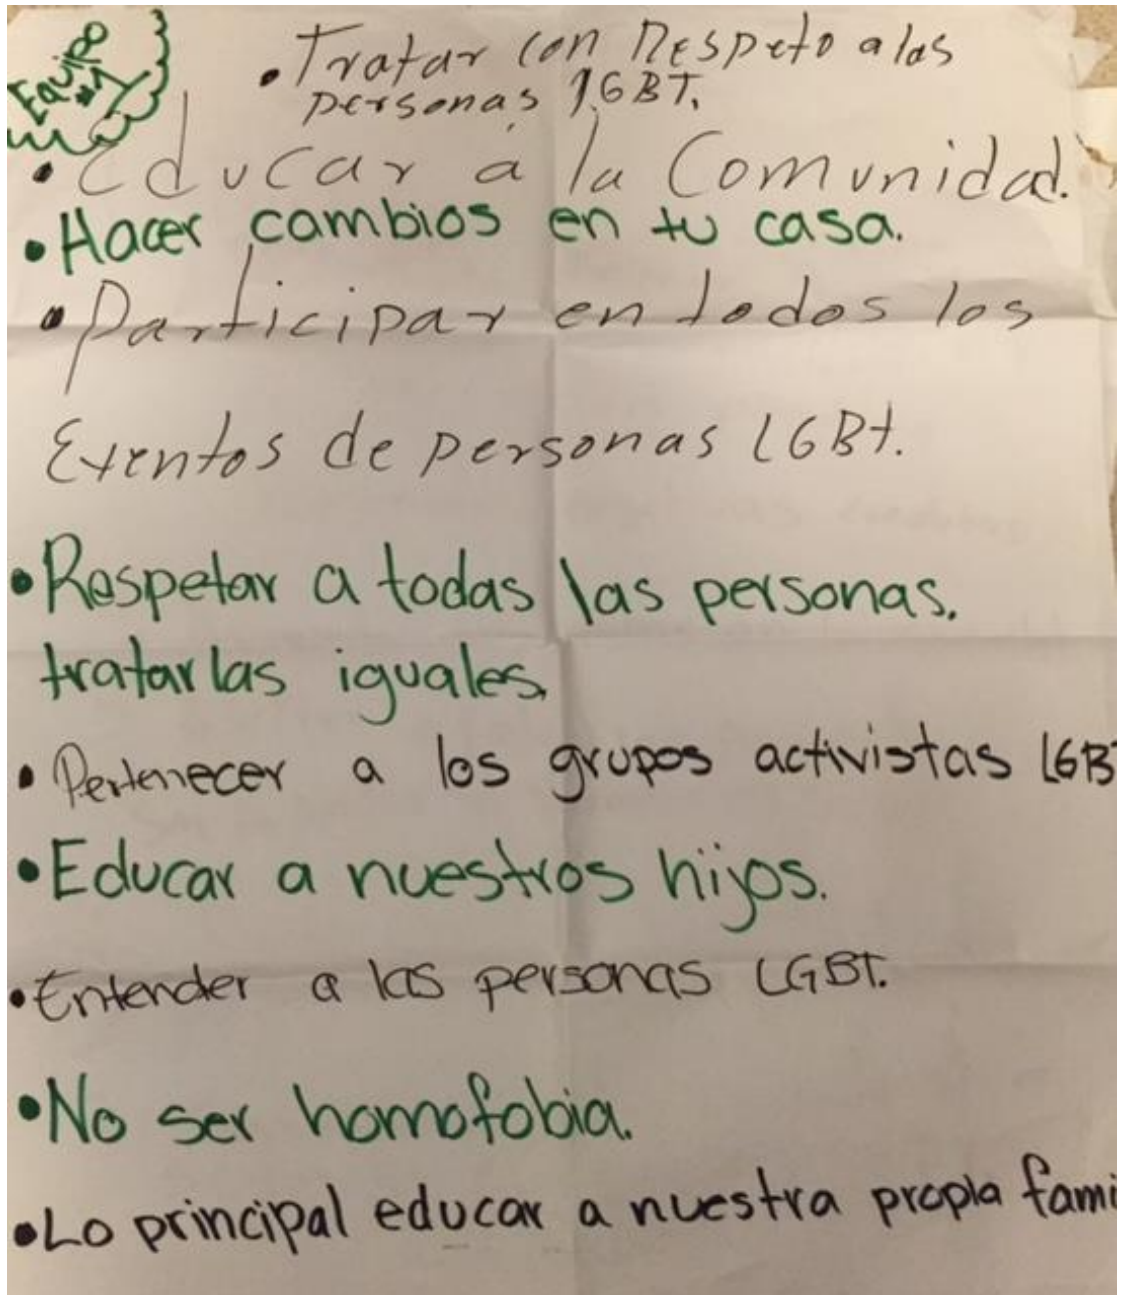 Equipo
#1
• Tratar con Respeto a las
personas LGBT.
• Educar a la Comunidad.
• Hacer cambios en tu casa.
• Participar en todos los
Eventos de personas LGBt.
• Respetar a todas las personas.
tratarlas iguales.
• Pertenecer a los grupos activistas LGBT
• Educar a nuestros hijos.
• Entender a las personas LGBT.
• No ser homofobia.
• Lo principal educar a nuestra propia fami